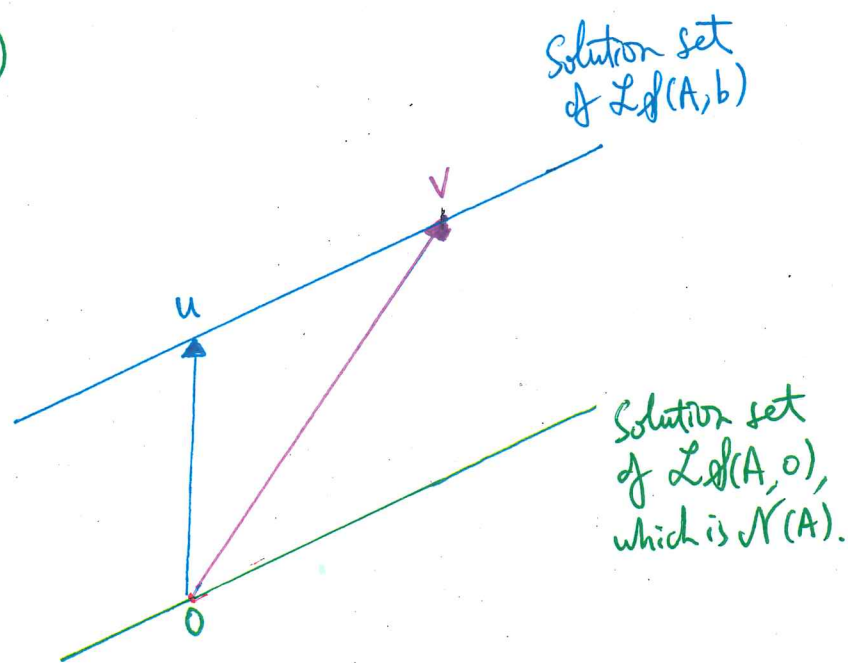 )
Solution set
of LS(A, b)
V
u
Solution set
of LS(A, 0),
which is N(A).
0